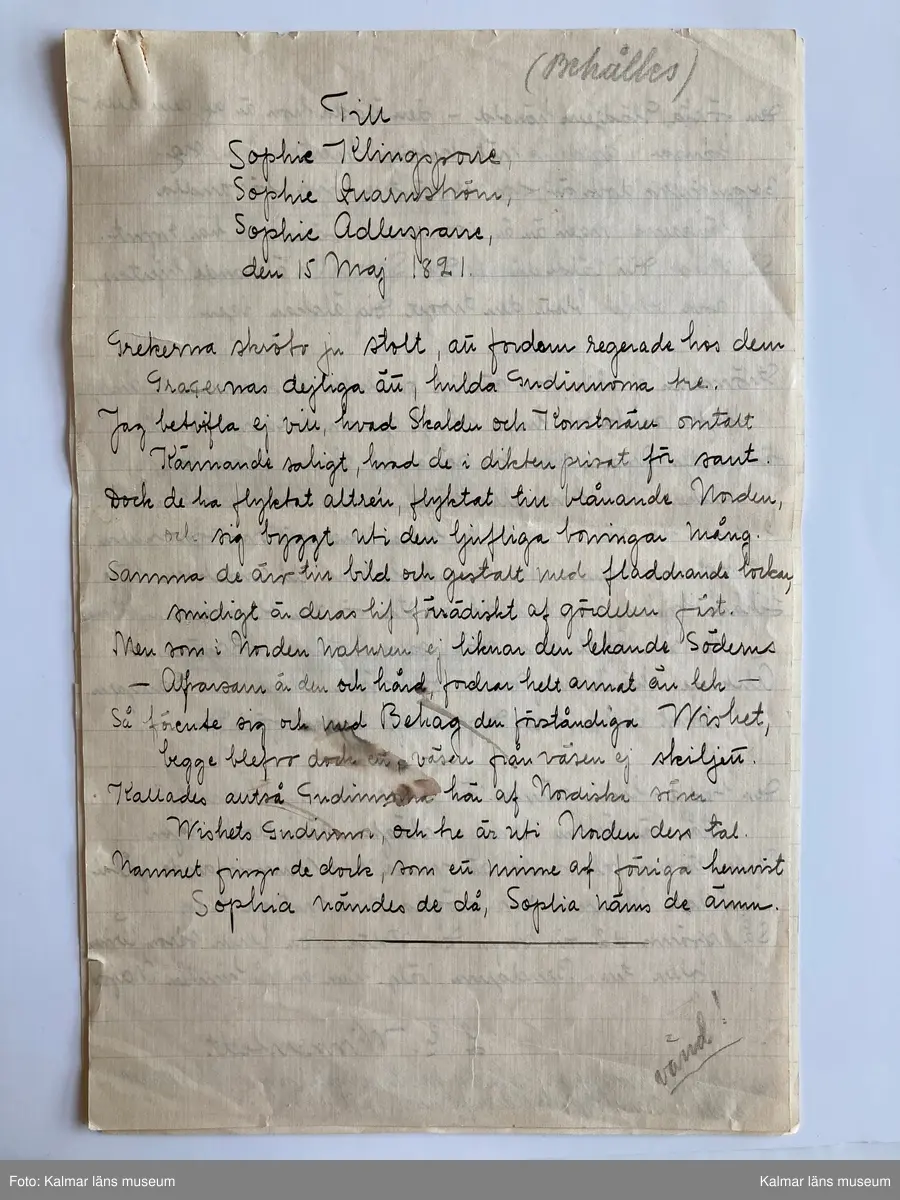 (Behålles)
Till
Sophie Klingsporre,
Sophie Quarnström,
Sophie Adlersparre,
den 15 Maj 1821.
Grekerna skröto ju stolt, att fordom regerade hos dem
Gracernas dejliga ätt, hulda Gudinnorna tre.
Jag betvifla ej vill, hvad Skalder och Konstnärer omtalt
Kännande saligt, hvad de i dikten prisat för sant.
Dock de ha flyktat altre'n, flyktat till blånande Norden,
och sig byggt uti den ljufliga boningar mång.
Samma de äro till bild och gestalt med fladdrande lockar,
smidigt är deras lif förrädiskt af gördelen fäst.
Men som i Norden naturen ej liknar den lekande Söderns
— Alfvarsam är den och hård, fordrar helt annat än lek —
Så förente sig och med Behag den förståndiga Wishet,
begge blefvo dock ett, väsen från väsen ej skiljett.
Kallades alltså Gudinnorna här af Nordiska söner
Wishets Gudinnor, och tre är uti Norden dess tal.
Namnet fingo de dock, som ett minne af förriga hemvist
Sophia nämdes de då, Sophia näms de ännu.
vänd!
Foto: Kalmar läns museum
Kalmar läns museum